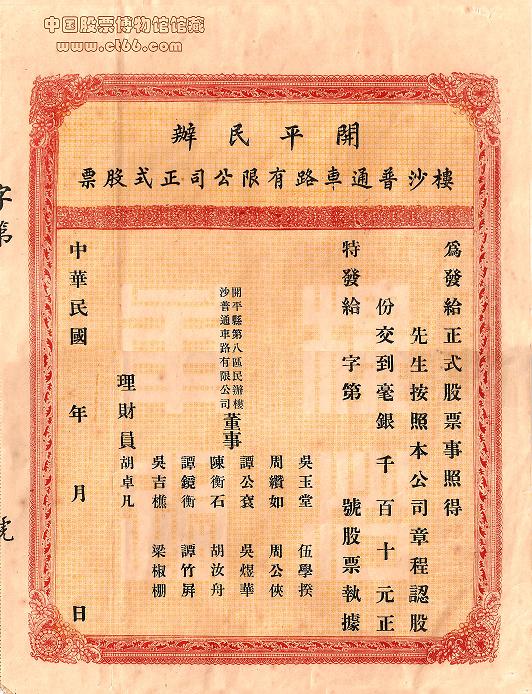 中国股票博物馆馆藏
www.cl66.com
開平民辦
樓沙普通車路有限公司正式股票
爲發給正式股票事照得
先生按照本公司章程認股
份交到毫銀千百十元正
特發給 字第 號股票執據
開平縣第八區民辦樓
沙普通車路有限公司
董事
吳玉堂 伍學揆
周纘如 周公俠
譚公袞 吳煜華
陳衡石 胡汝舟
譚鏡衡 譚竹屏
吳吉樵 梁椒棚
理財員 胡卓凡
中華民國 年 月 日
字第
號